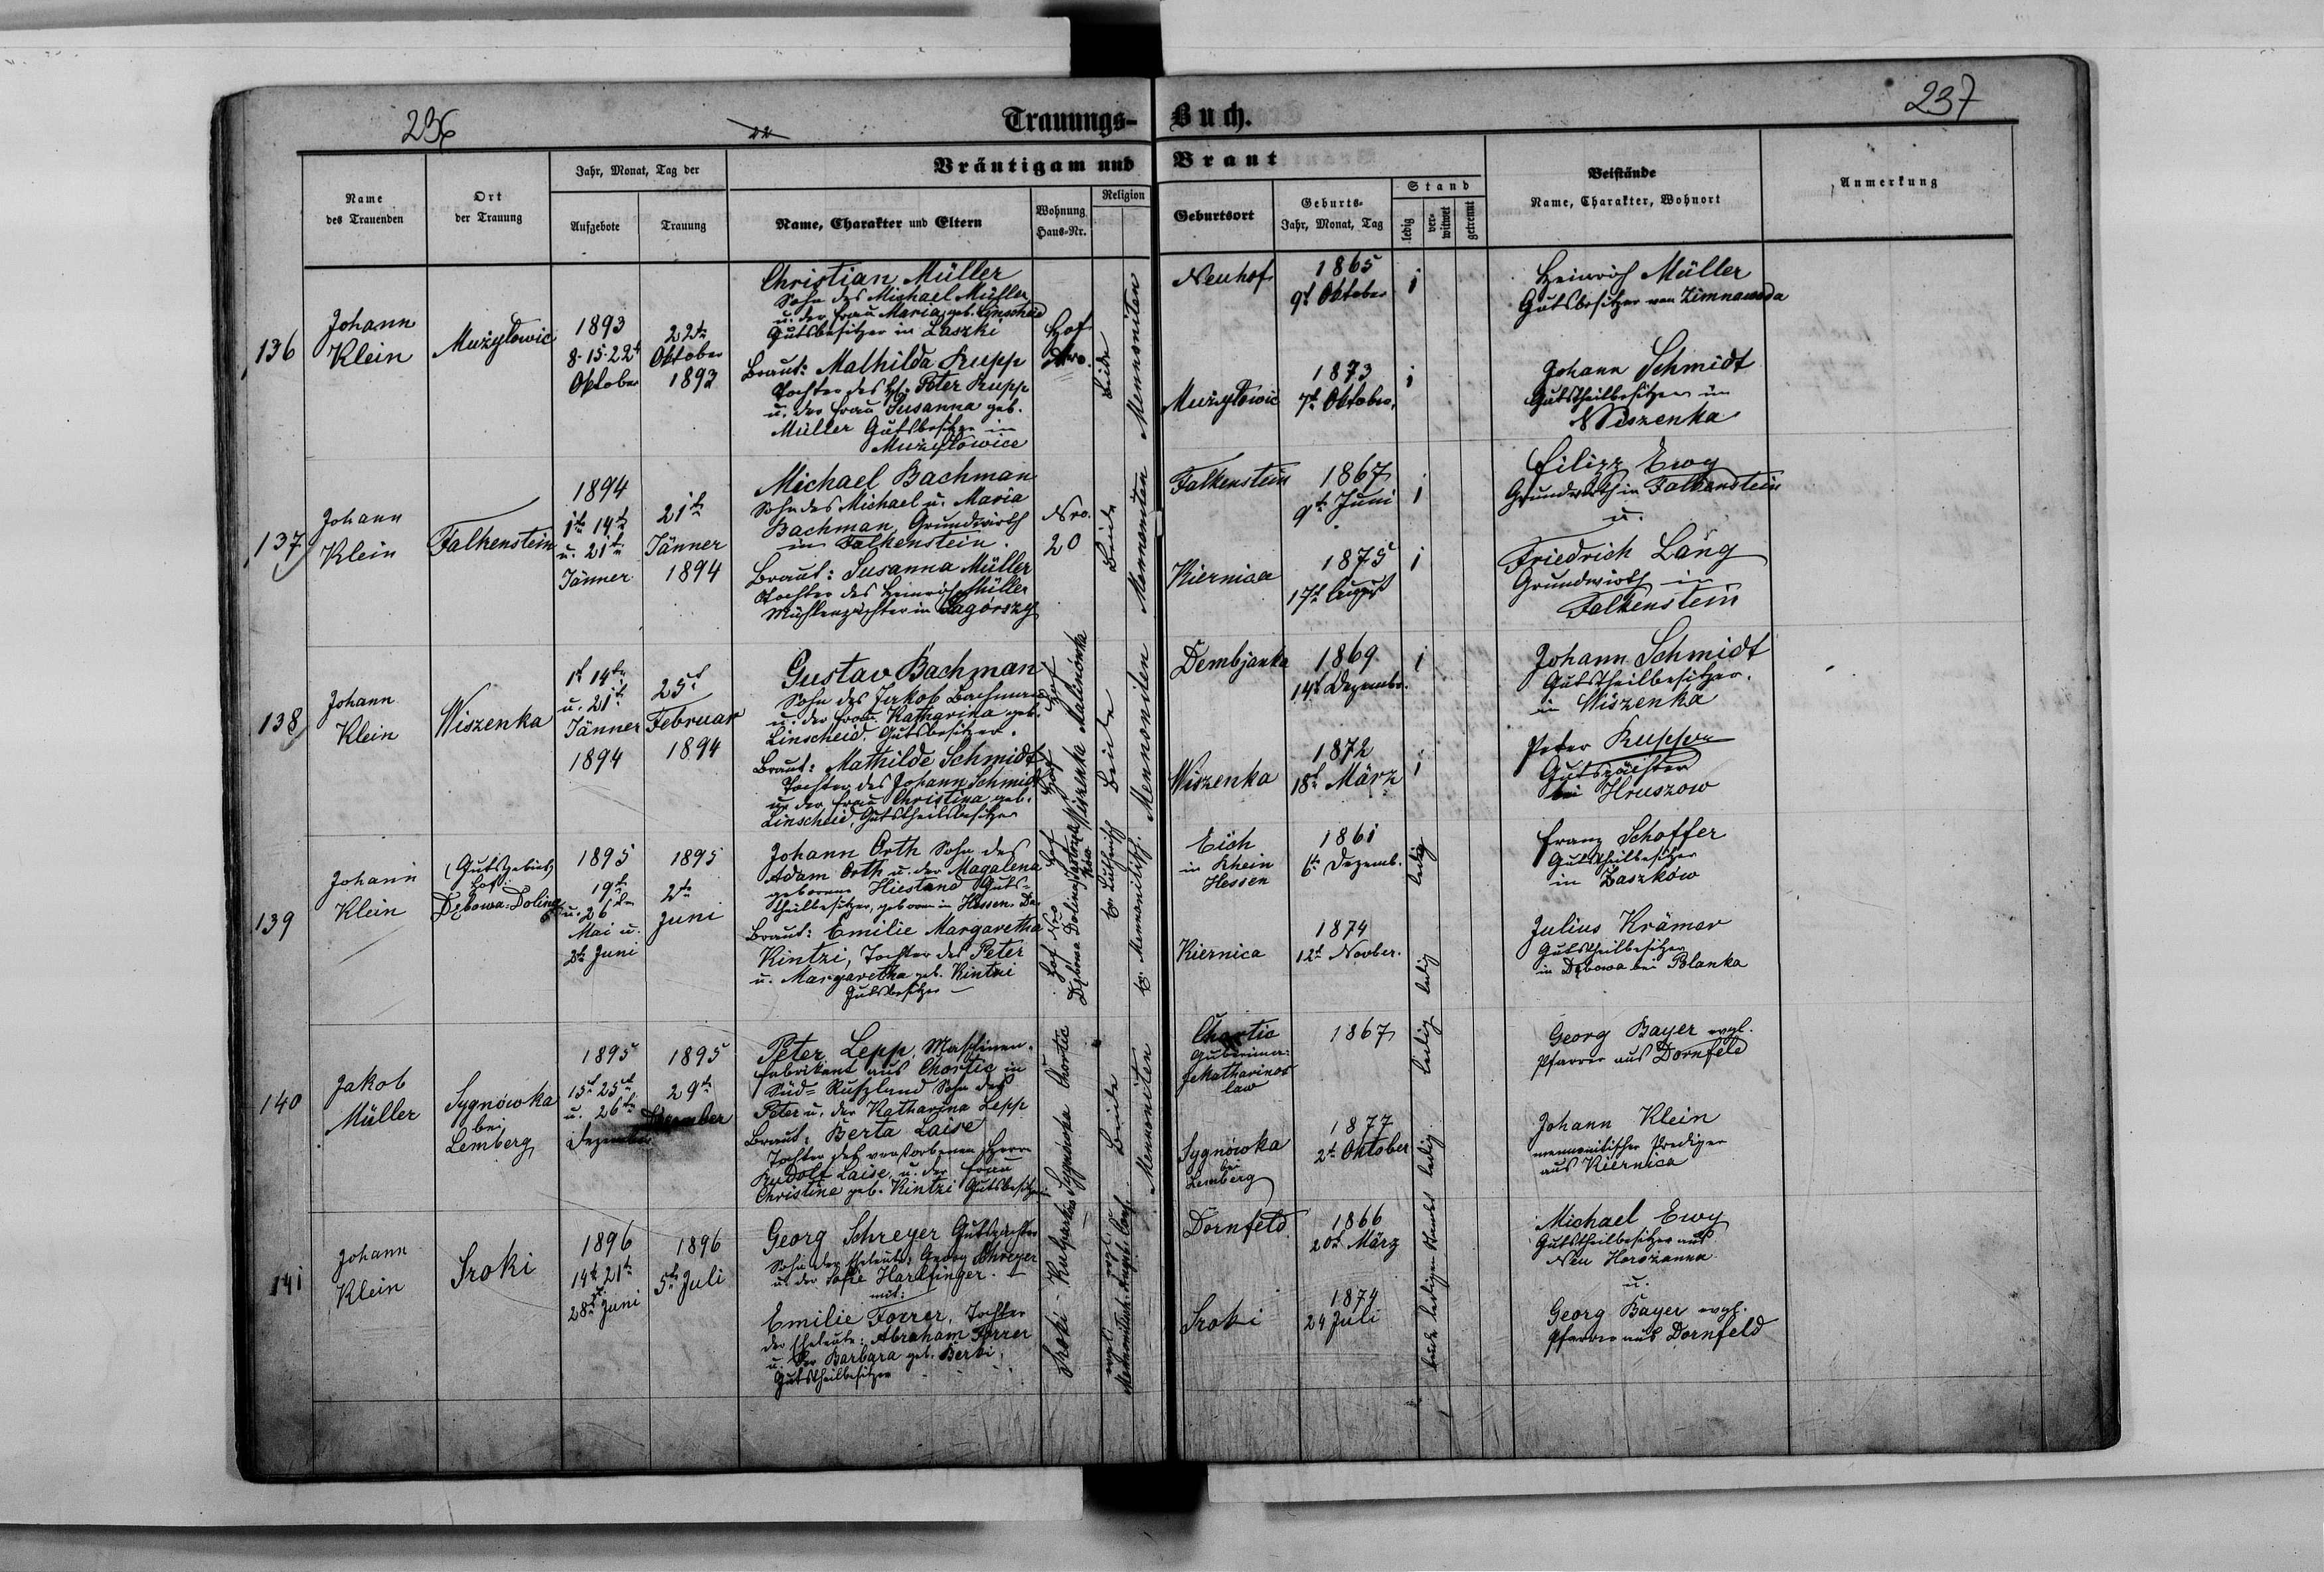 236
22
Trauungs-
Buch.
237
Name des Trauenden
Ort der Trauung
Jahr, Monat, Tag der
Aufgebote
Trauung
Bräutigam und
Braut
Name, Charakter und Eltern
Wohnung Haus-Nr.
Religion
Geburtsort
Geburts-
Jahr, Monat, Tag
Stand
ledig
ver-witwet
getrennt
Beistände
Name, Charakter, Wohnort
Anmerkung
136
Johann
Klein
Mużyłowic
1893
8. 15. 22t
Oktober
22te
Oktober
1893
Christian Müller
Sohn des Michael Müller
u. der Frau Maria, geb. Linscheid
Gutsbesitzer in Laszki
Braut: Mathilda Rupp
Tochter des Peter Rupp
u. der Frau Susanna geb.
Müller Gutsbesitzer in
Mużyłowice
Hof
Nro.
Beide
Mennoniten
Neuhof
1865
9t Oktober
1
Mużyłowic
1873
7t Oktober
1
Heinrich Müller
Gutsbesitzer von Zimnawoda
Johann Schmidt
Gutstheilbesitzer in
Wiszenka
137
Johann
Klein
Falkenstein
1894
1te 14te
u. 21te
Jänner
21te
Jänner
1894
Michael Bachman
Sohn des Michael u. Maria
Bachman, Grundwirth
in Falkenstein.
Braut: Susanna Müller
Tochter des Heinrich Müller
Mühlenpächter in Zagórszy
Nro.
20
Beide
Mennoniten
Falkenstein
1867
9t Juni
1
Kiernica
1875
17t August
1
Filipp Ewy
Grundwirth in Falkenstein
u.
Friedrich Lang
Grundwirth in
Falkenstein
138
Johann
Klein
Wiszenka
1t 14te
u. 21t
Jänner
1894
25t
Februar
1894
Gustav Bachman
Sohn des Jakob Bachman
u. der Frau Katharina geb.
Linscheid. Gutsbesitzer.
Braut: Mathilde Schmidt
Tochter des Johann Schmidt
u. der Frau Christina, geb.
Linscheid, Gutstheilbesitzer
Hof Malinówka
Hof Wiszenka
Beide
Mennoniten
Dembjanka
1869
14t Dezembr.
1
Wiszenka
1872
18t März
1
Johann Schmidt
Gutstheilbesitzer.
in Wiszenka
Peter Rupp
Gutspächter
bei Hruszow
139
Johann
Klein
(Gutsgebiet)
Hof:
Dębowa-Dolina
1895
19te
u. 26te
Mai u.
2te Juni
1895
2te
Juni
Johann Orth Sohn des
Adam Orth u. der Magalena
geborene Hiestand Guts-
theilbesitzer, geboren in Hessen-
Braut: Emilie Margaretha
Kintzi, Tochter des Peter
u. Margaretha geb. Kintzi
Gutsbesitzer
Hof Nro
Dębowa Dolina
Eich
in Rhein
Hessen
1861
6te Dezemb.
ledig
Kiernica
1874
12t Novber.
ledig
Franz Schoffer
Gutstheilbesitzer
in Zaszków
Julius Krämer
Gutstheilbesitzer
in Dębowa bei Polanka
140
Jakob
Müller
Sygnówka
bei
Lemberg
1895
15t 25t
u. 26te
Dezember
1895
29te
Dezember
Peter Lepp, Maschinen-
fabrikant aus Chortic in
Süd-Rußland Sohn des
Peter u. der Katharina Lepp
Braut: Berta Laise
Tochter des verstorbenen Herrn
Rudolf Laise, u. der Frau
Christine geb. Kintzi Gutsbesitzer
Chortic
Sygniówka
Beide
Mennoniten
Chortic
1867
ledig
Sygnówka
bei
Lemberg
1877
2te Oktober
ledig
Georg Bayer evgl.
Pfarrer aus Dornfeld
Johann Klein
mennonitischer Prediger
aus Kiernica
141
Johann
Klein
Sroki
1896
14te 21te
28t Juni
1896
5te Juli
Georg Schreyer Gutspächter
Sohn der Eheleute Georg Schreyer
u. der Sofie Harlfinger.
mit:
Emilie Forrer, Tochter
der Eheleute: Abraham Forrer
u. der Barbara geb. Berki
Gutstheilbesitzer
Sroki - Kulparków
Dornfeld
1866
20t März
beide ledigen Standes
Sroki
1874
24 Juli
Michael Ewy
Gutstheilbesitzer aus
Neu Horożanna
u.
Georg Bayer evgl.
Pfarrer aus Dornfeld